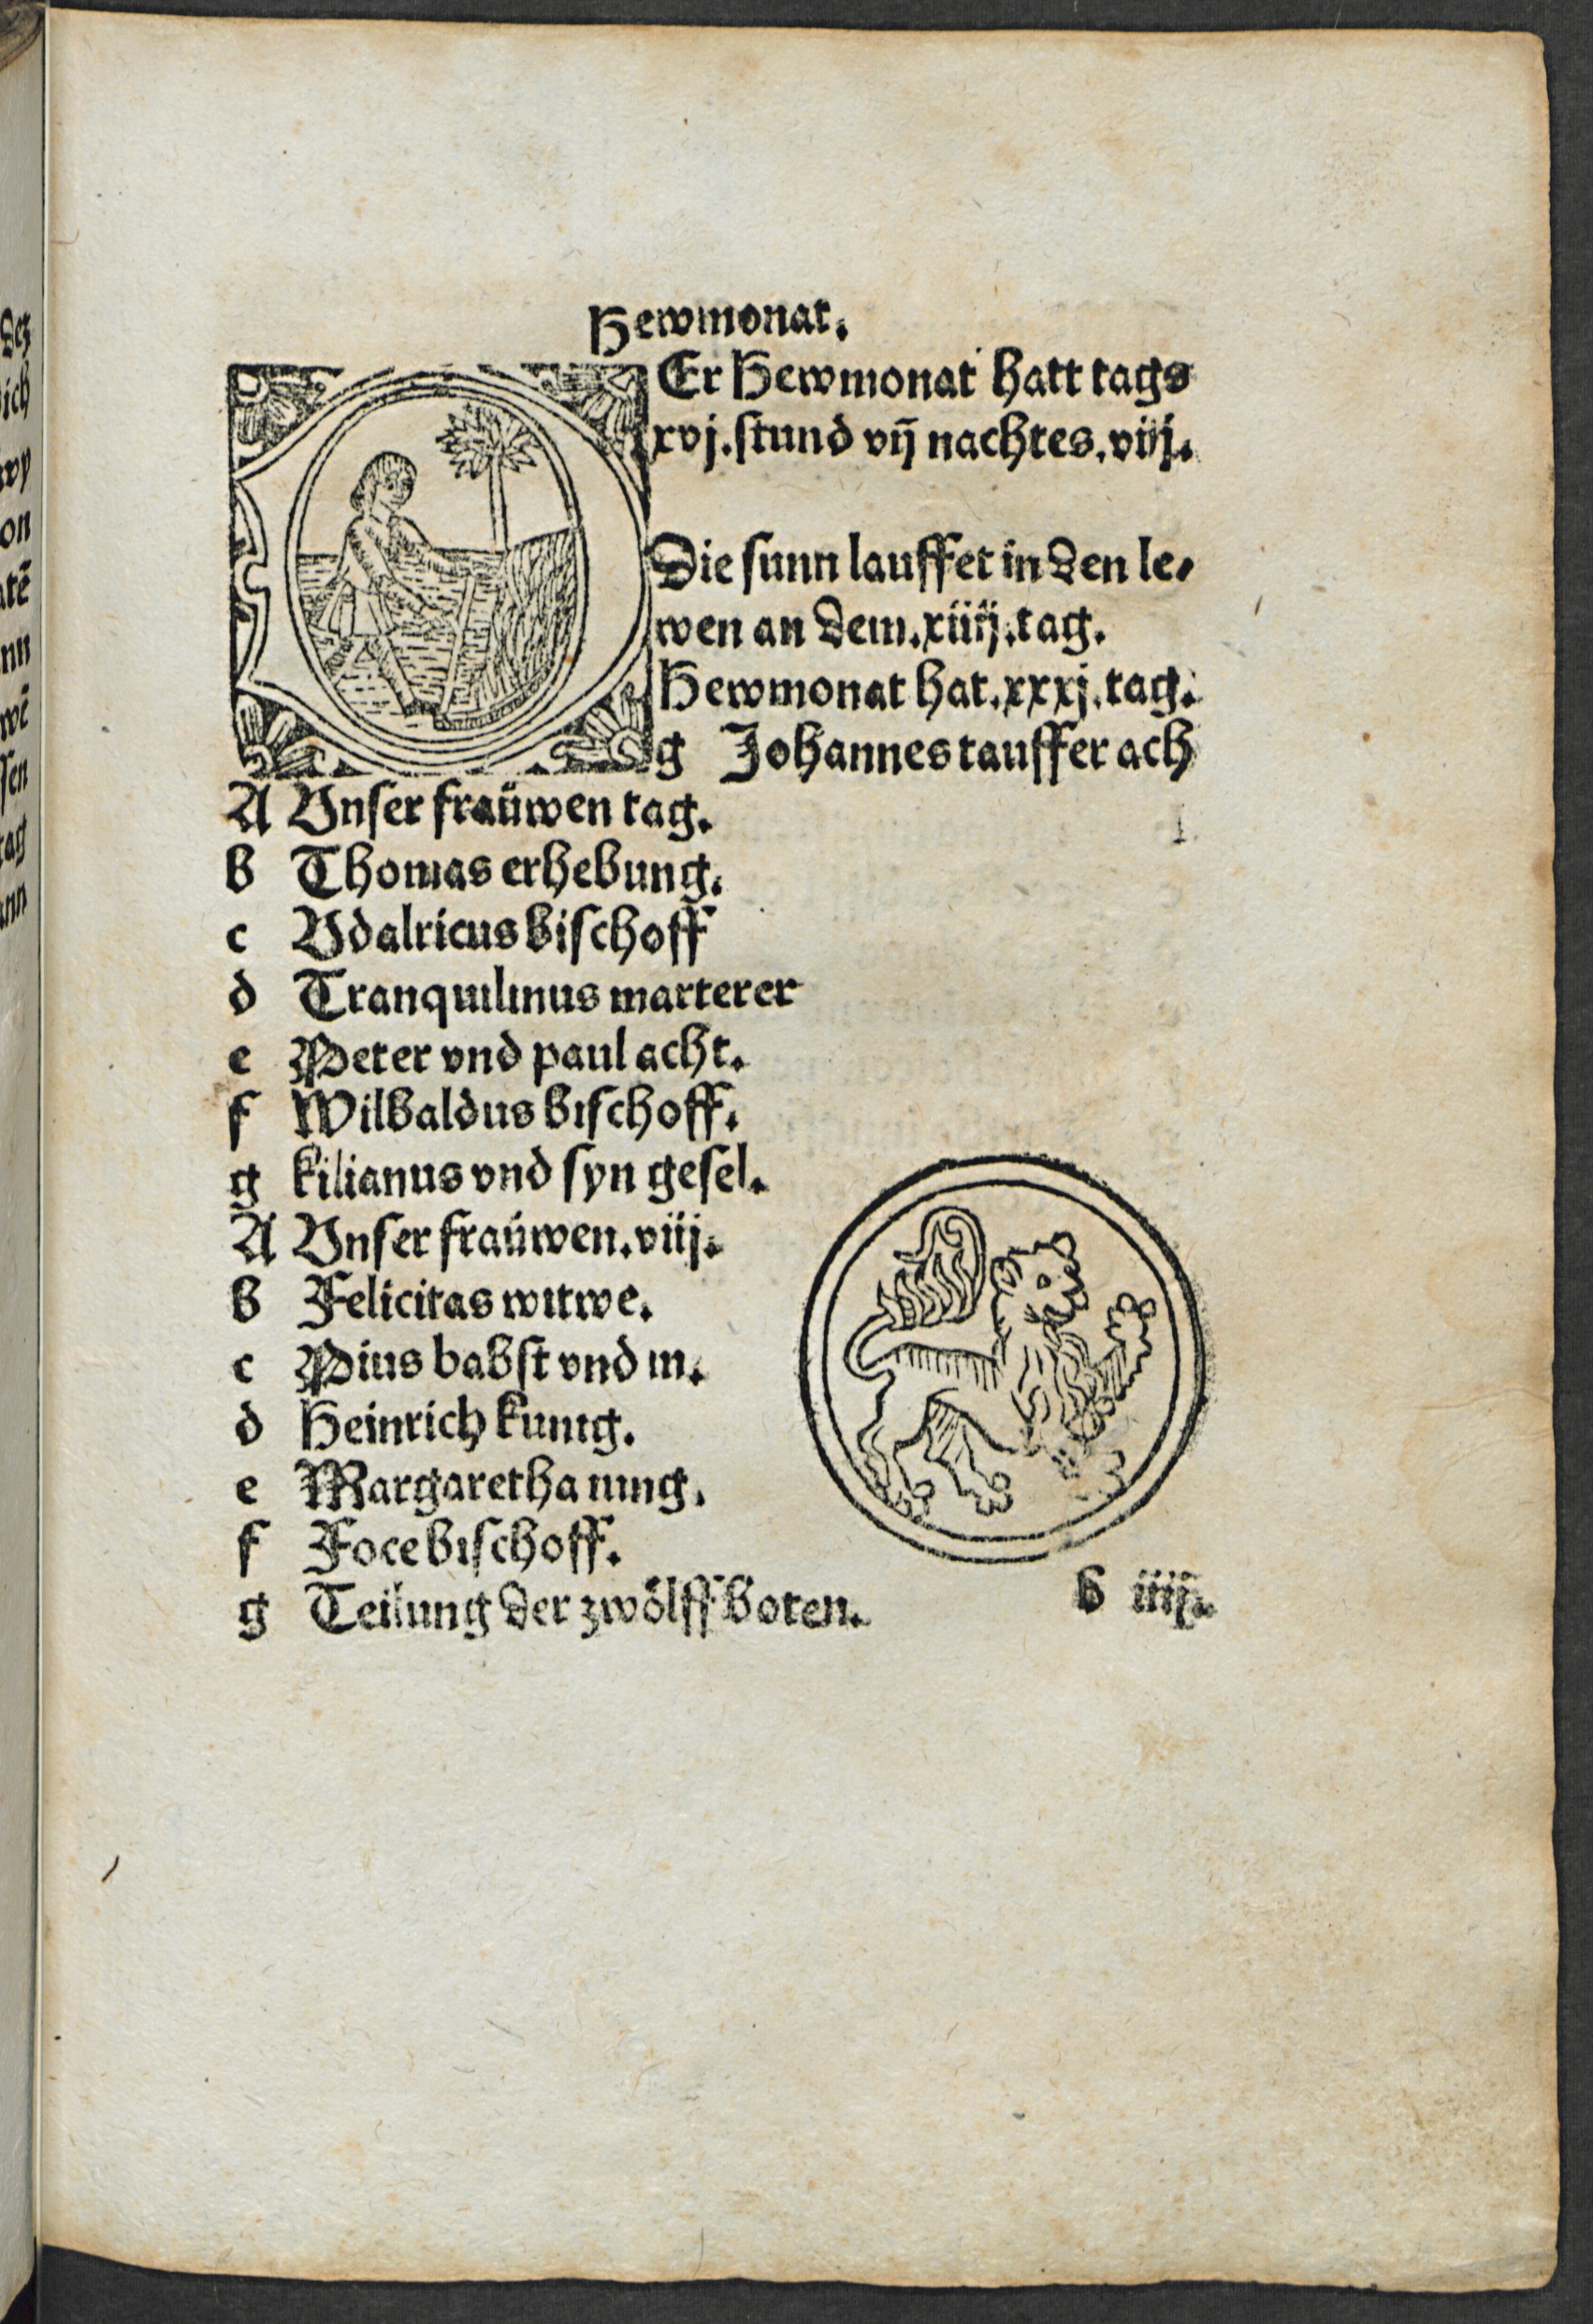 Hewmonat.
Er Hewmonat hatt tags
xvj. stund vij nachtes. viij.
Die sunn lauffet in den le⸗
wen an dem. xiiij. tag.
Hewmonat hat. xxxj. tag.
g Johannes tauffer ach
A Vnser fraüwen tag.
b Thomas erhebung.
c Vdalricus bischoff
d Tranquilinus marterer
e Peter vnd paul acht.
f Wilbaldus bischoff.
g kilianus vnd syn gesel.
A Vnser fraüwen. viij.
b Felicitas witwe.
c Pius babst vnd m.
d Heinrich kunig.
e Margaretha iung.
f Foce bischoff.
g Teilung der zwölff boten.
b iiij.